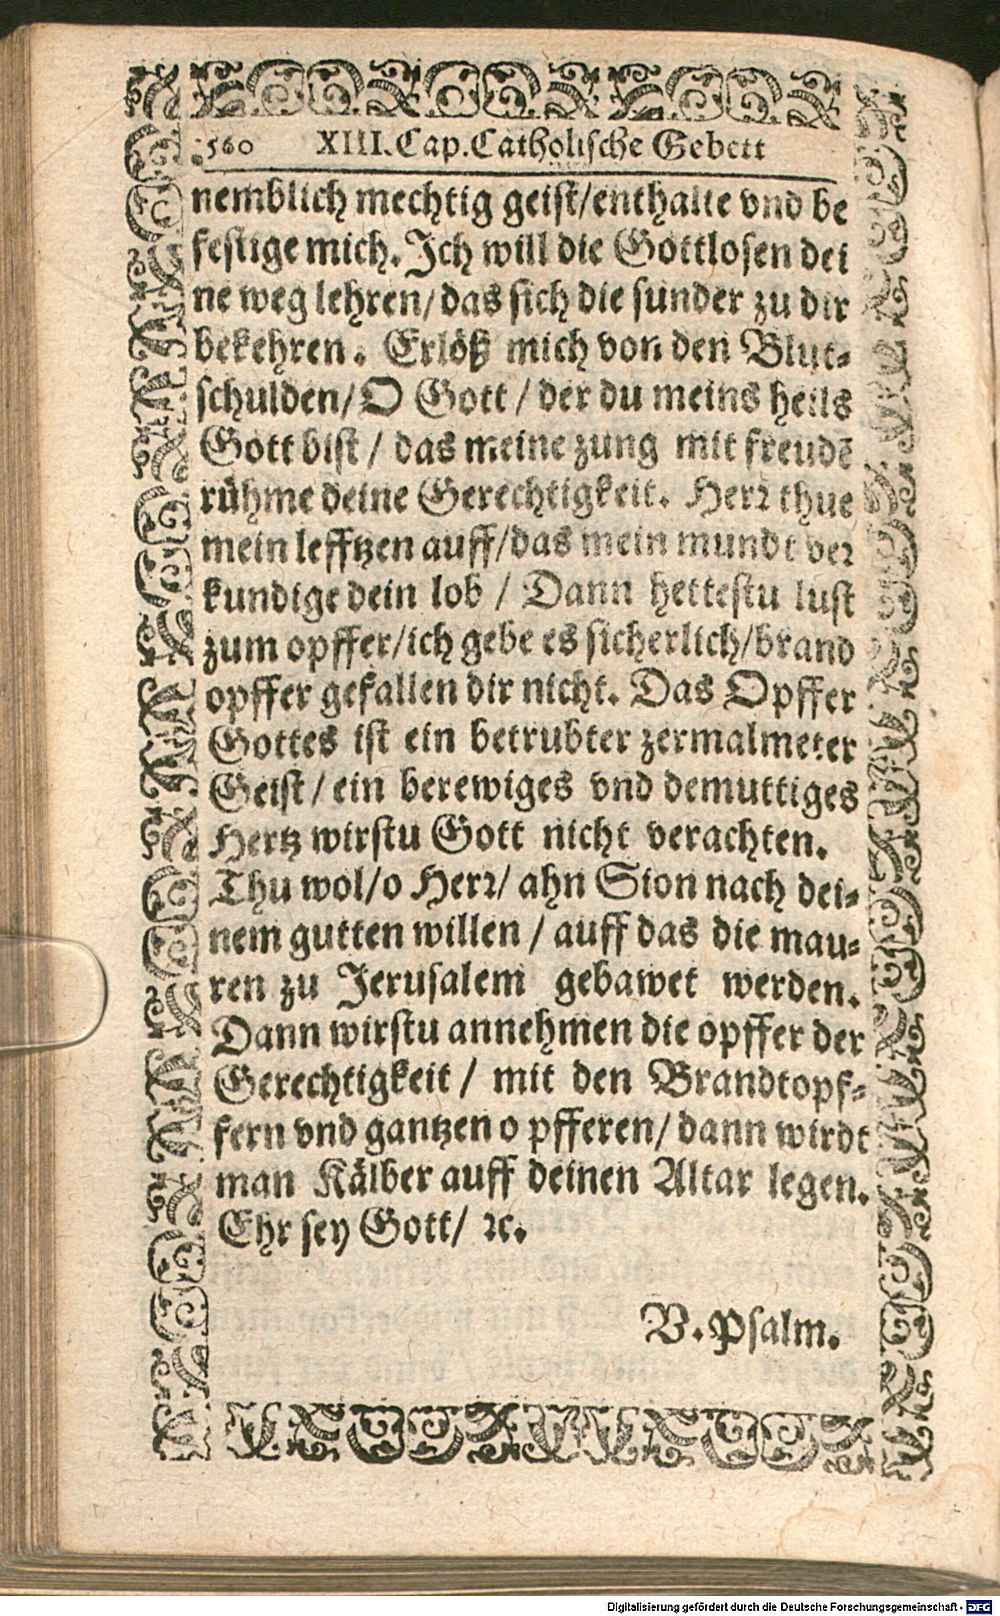 560 XIII.Cap.Catholische Gebett
nemblich mechtig geist/enthalte vnd be
festige mich. Ich will die Gottlosen dei
ne weg lehren/das sich die sunder zu dir
bekehren. Erlöß mich von den Blut-
schulden/O Gott/der du meins heils
Gott bist/das meine zung mit freudē
rühme deine Gerechtigkeit. Herꝛ thue
mein lefftzen auff/das mein mundt veꝛ
kundige dein lob/Dann hettestu lust
zum opffer/ich gebe es sicherlich/brand
opffer gefallen dir nicht. Das Opffer
Gottes ist ein betrubter zermalmeter
Geist/ein berewiges vnd demuttiges
Hertz wirstu Gott nicht verachten.
Thu wol/o Herꝛ/ahn Sion nach dei-
nem gutten willen/auff das die mau-
ren zu Jerusalem gebawet werden.
Dann wirstu annehmen die opffer der
Gerechtigkeit/mit den Brandtopf-
fern vnd gantzen o pfferen/dann wirdt
man Kälber auff deinen Altar legen.
Ehr sey Gott/ꝛc.
V.Psalm.
Digitalisierung gefördert durch die Deutsche Forschungsgemeinschaft - DFG